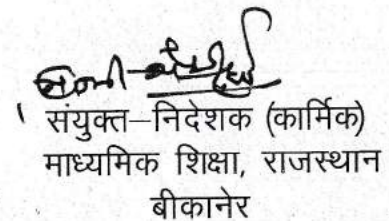 संयुक्त–निदेशक (कार्मिक)
माध्यमिक शिक्षा, राजस्थान
बीकानेर